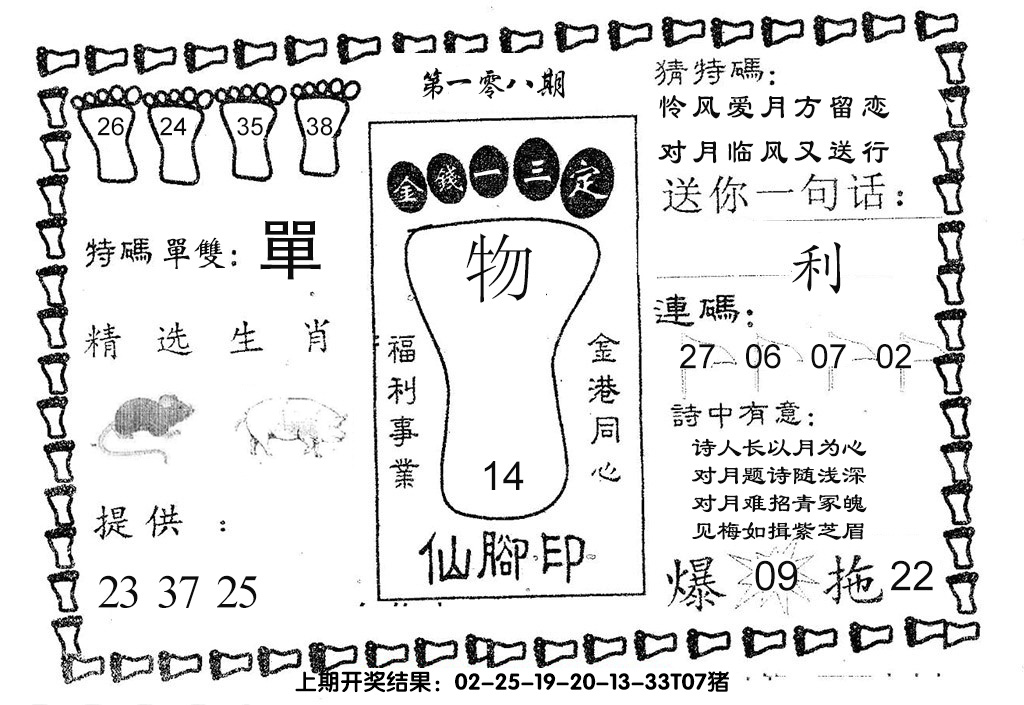 第一零八期
26 24 35 38
特碼單雙：單
精选生肖
提供：
23 37 25
金錢一三定
物
福利事業
金港同心
14
仙腳印
猜特碼：
怜风爱月方留恋
对月临风又送行
送你一句话：
利
連碼：
27 06 07 02
詩中有意：
诗人长以月为心
对月题诗随浅深
对月难招青冢魄
见梅如揖紫芝眉
爆 09 拖 22
上期开奖结果：02-25-19-20-13-33T07猪